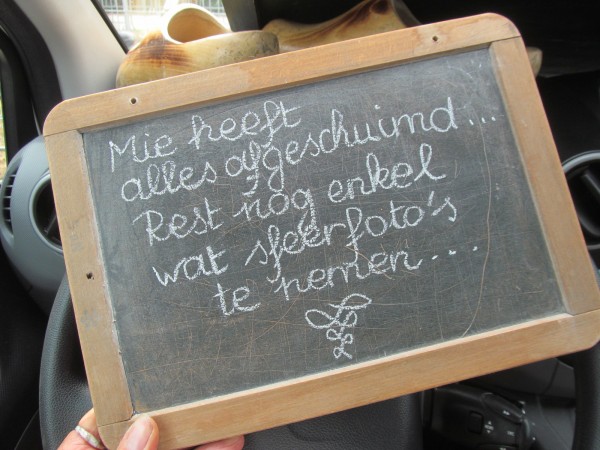 Mie heeft
alles afgeschuimd...
Rest nog enkel
wat sfeerfoto's
te nemen...